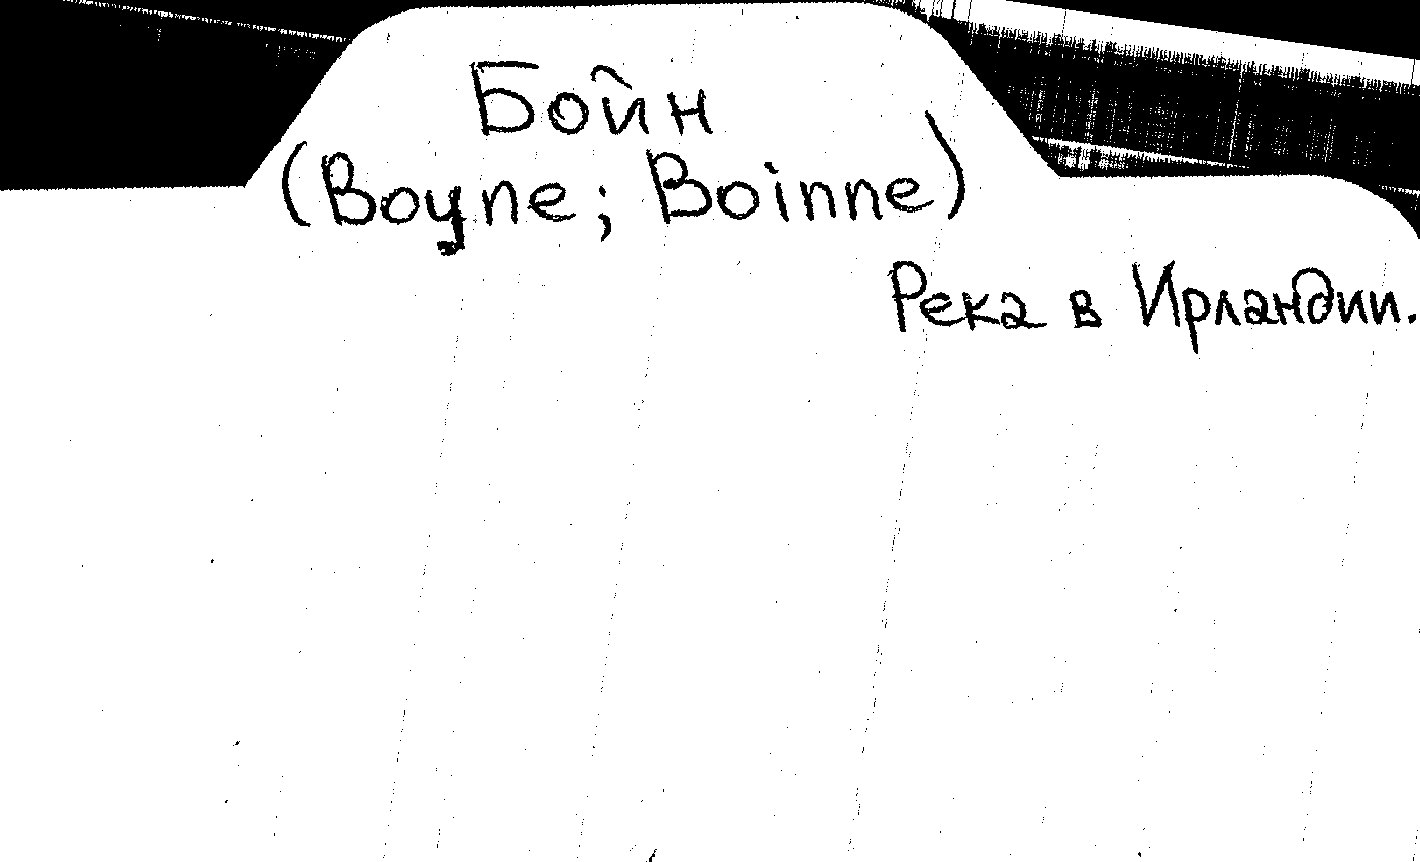 Бойн
(Boyne; Boinne)
Река в Ирландии.